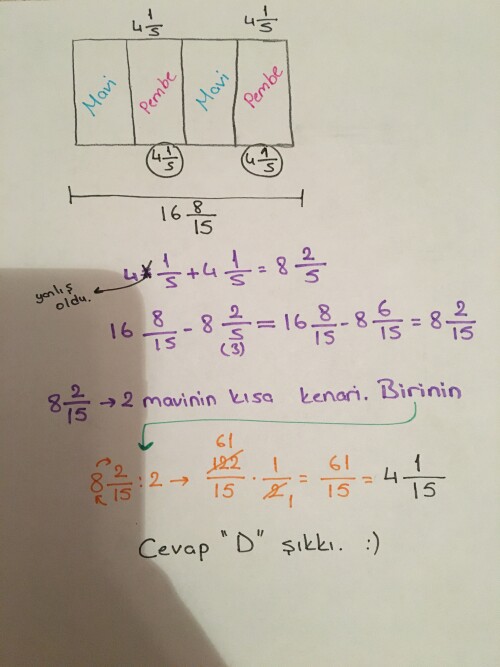 4 1/5 4 1/5
Mavi Pembe Mavi Pembe
4 1/5 4 1/5
16 8/15
4 1/5 + 4 1/5 = 8 2/5
yanlış
oldu.
16 8/15 - 8 2/5 = 16 8/15 - 8 6/15 = 8 2/15
(3)
8 2/15 → 2 mavinin kısa kenari. Birinin
61
8 2/15 : 2 → 122/15 . 1/2 = 61/15 = 4 1/15
1
Cevap "D" şıkkı. :)